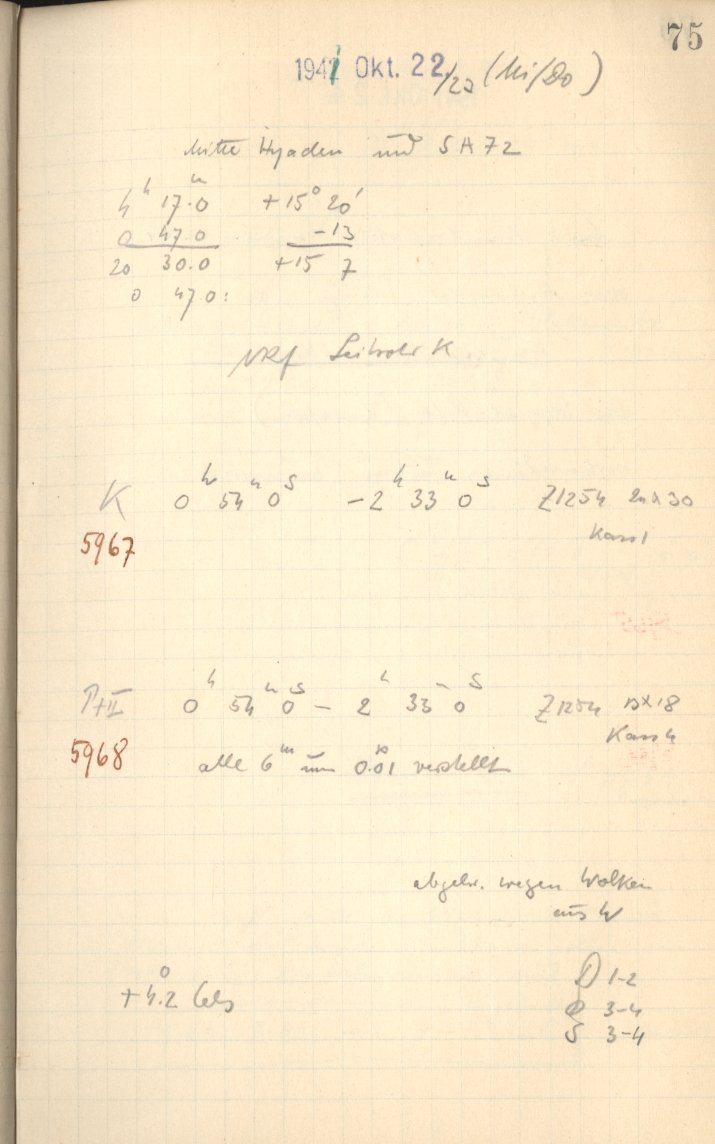 75
1941 Okt. 22/23 (Mi/Do)
Mitte Hyaden und SA 72
4h 17.m0 +15° 20'
0 47.0 -13
20 30.0 +15 7
0 47.0:
Leitrohr K
K 0h 54m 0s -2h 33m 0s Z1254 24x30
Kass 1
5967
0h 54m 0s - 2h 33m 0s Z1254 13x18
Kass 4
5968
alle 6m um 0.01 verstellt
abgebr. wegen Wolken
aus W
+4.°2 Cels
D 1-2
3-4
S 3-4